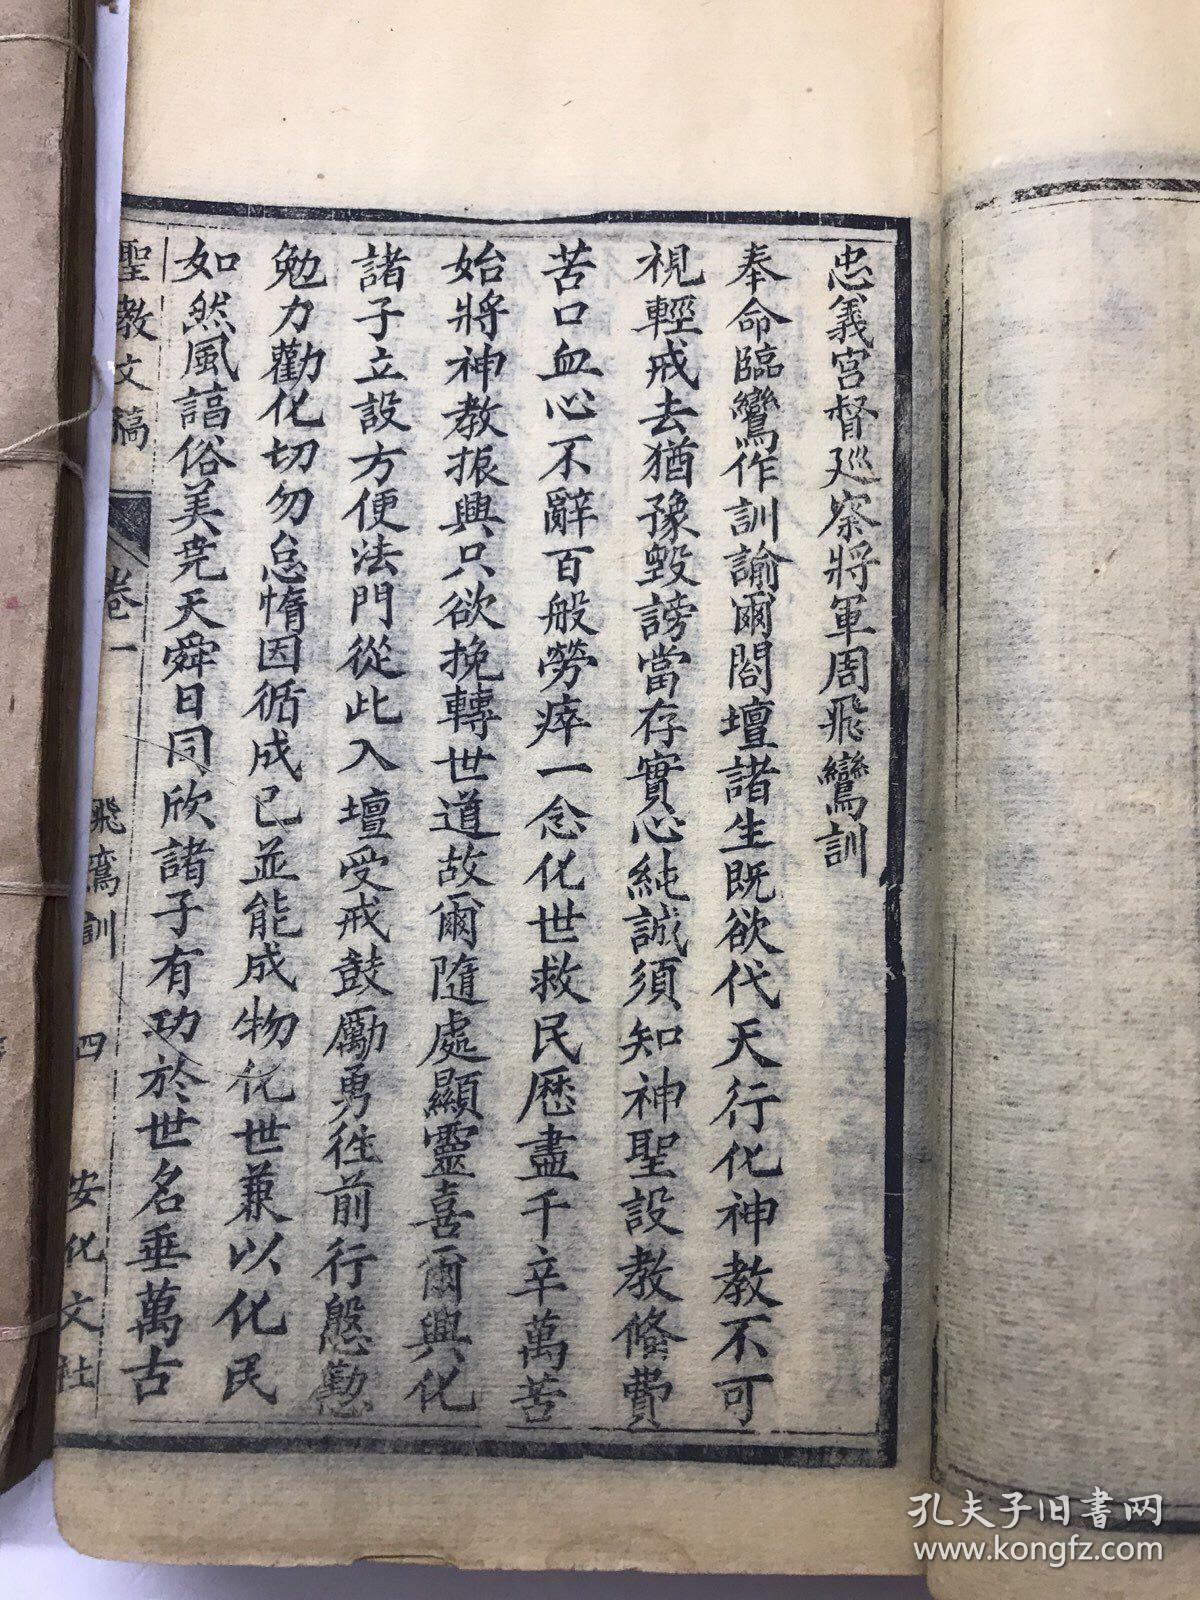 忠義宮督廵察將軍周飛鸞訓
奉命臨鸞作訓諭爾閤壇諸生既欲代天行化神教不可
視輕戒去猶豫毀謗當存實心純誠須知神聖設教俻費
苦口血心不辭百般勞瘁一念化世救民歷盡千辛萬苦
始將神教振興只欲挽轉世道故爾隨處顯靈喜爾興化
諸子立設方便法門從此入壇受戒鼓勵勇徃前行慇懃
勉力勸化切勿怠惰因循成己並能成物化世兼以化民
如然風謟俗美堯天舜日同欣諸子有功於世名垂萬古
聖教文稿 卷一 飛鸞訓 四 安化文社
孔夫子旧书网
www.kongfz.com